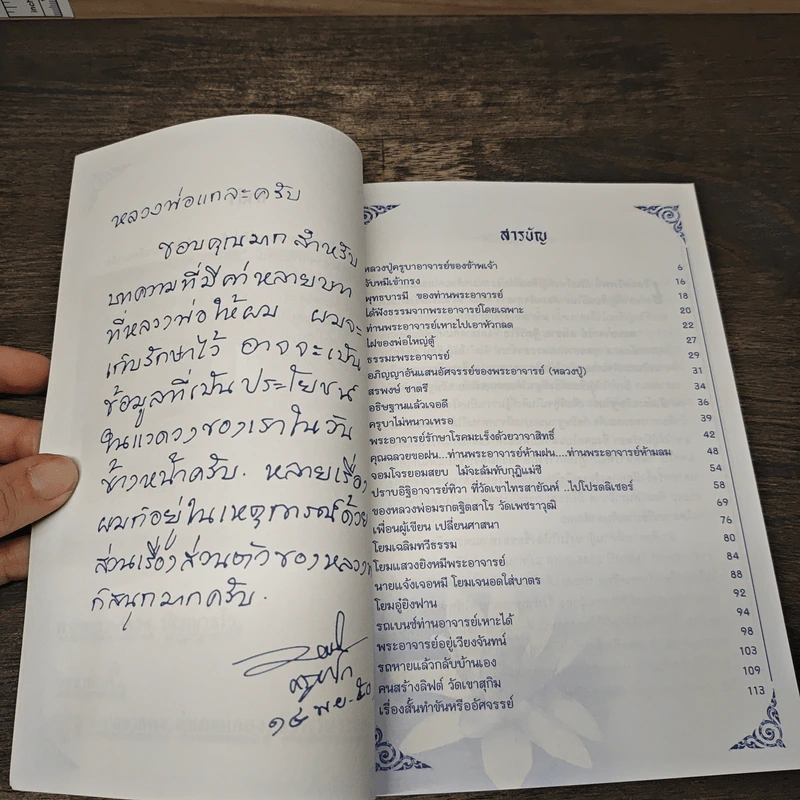 หลวงพ่อแกละครับ
ขอบคุณมาก สำหรับ
บทความที่มีค่าหลายบท
ที่หลวงพ่อให้ผม ผมจะ
เก็บรักษาไว้ อาจจะเป็น
ข้อมูลที่เป็นประโยชน์
ในแวดวงของเราในวัน
ข้างหน้าครับ. หลายเรื่อง
ผมก็อยู่ในเหตุการณ์ด้วย
ส่วนเรื่องส่วนตัวของหลวงพ่อ
ก็สนุกมากครับ.
๑๔ พย.
สารบัญ
หลวงปู่ครูบาอาจารย์ของข้าพเจ้า 6
จับหมีเข้ากรง 16
พุทธบารมี ของท่านพระอาจารย์ 18
ได้ฟังธรรมจากพระอาจารย์โดยเฉพาะ 20
ท่านพระอาจารย์เหาะไปเอาหัวกลด 22
ไฝของพ่อใหญ่ตู้ 27
ธรรมะพระอาจารย์ 29
อภิญญาอันแสนอัศจรรย์ของพระอาจารย์ (หลวงปู่) 31
สรพงษ์ ชาตรี 34
อธิษฐานแล้วเจอดี 36
ครูบาไม่หนาวเหรอ 39
พระอาจารย์รักษาโรคมะเร็งด้วยวาจาสิทธิ์ 42
คุณฉลวยขอฝน...ท่านพระอาจารย์ห้ามฝน....ท่านพระอาจารย์ห้ามลม 48
จอมโจรยอมสยบ ไม้จะล้มทับกุฏิแม่ชี 54
ปราบอิฐิอาจารย์ทิวา ที่วัดเขาไทรสายัณห์ ..ไปโปรดลิเชอร์ 58
ของหลวงพ่อมรกตฐิตสาโร วัดเพชราวุฒิ 69
เพื่อนผู้เขียน เปลี่ยนศาสนา 76
โยมเฉลิมทวีธรรม 80
โยมแสวงยิงหมีพระอาจารย์ 84
นายแจ้งเจอหมี โยมเจนอดใส่บาตร 88
โยมอู๋ยิงฟาน 92
รถเบนซ์ท่านอาจารย์เหาะได้ 94
พระอาจารย์อยู่เวียงจันทน์ 98
รถหายแล้วกลับบ้านเอง 103
คนสร้างลิฟต์ วัดเขาสุกิม 109
เรื่องสั้นทำขันหรืออัศจรรย์ 113